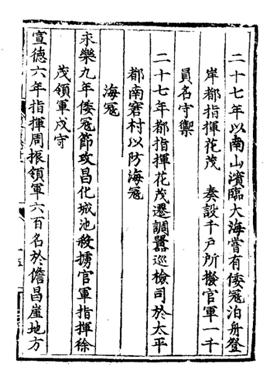 二十七年以南山濱臨大海嘗有倭寇泊舟登
岸都指揮花茂　奏設千戶所撥官軍一千
員名守禦
二十七年都指揮花茂遷調蠶巡檢司於太平
都南窖村以防海寇
海寇
永樂九年倭寇節攻昌化城池殺擄官軍指揮徐
茂領軍戍守
宣德六年指揮周振領軍六百名於儋昌崖地方